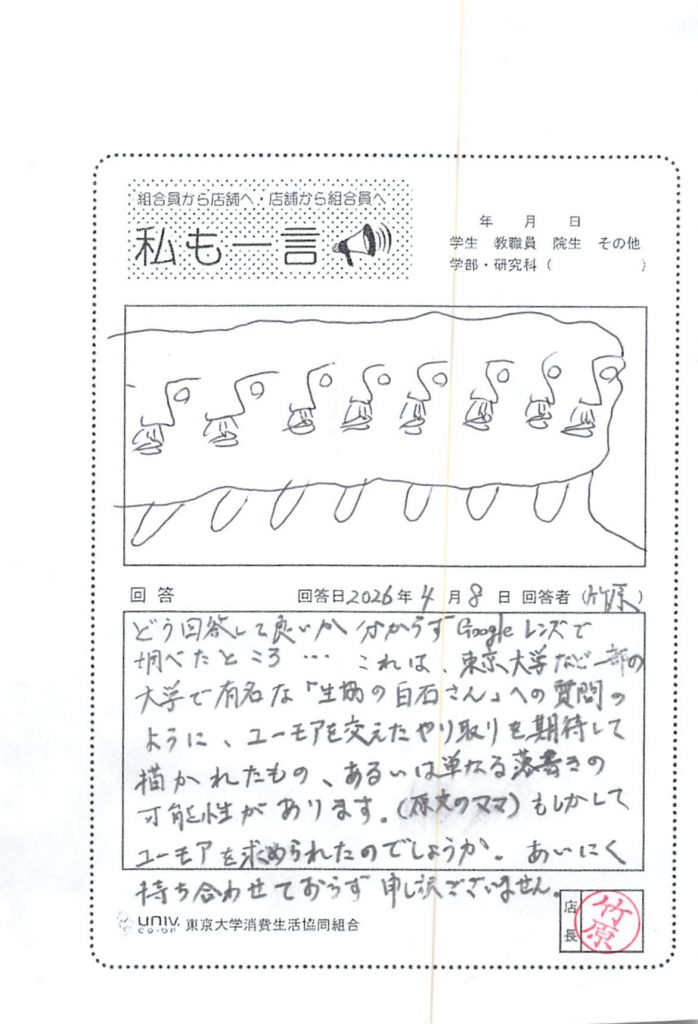 組合員から店舗へ・店舗から組合員へ
私も一言
年 月 日
学生 教職員 院生 その他
学部・研究科( )
回答 回答日2026年4月8日 回答者(竹原)
どう回答して良いか分からずGoogleレンズで
調べたところ … これは、東京大学など一部の
大学で有名な「生協の白石さん」への質問の
ように、ユーモアを交えたやり取りを期待して
描かれたもの、あるいは単なる落書きの
可能性があります。(原文のママ)もしかして
ユーモアを求められたのでしょうか。あいにく
持ち合わせておらず申し訳ございません。
UNIV. CO-OP 東京大学消費生活協同組合
店長 竹原